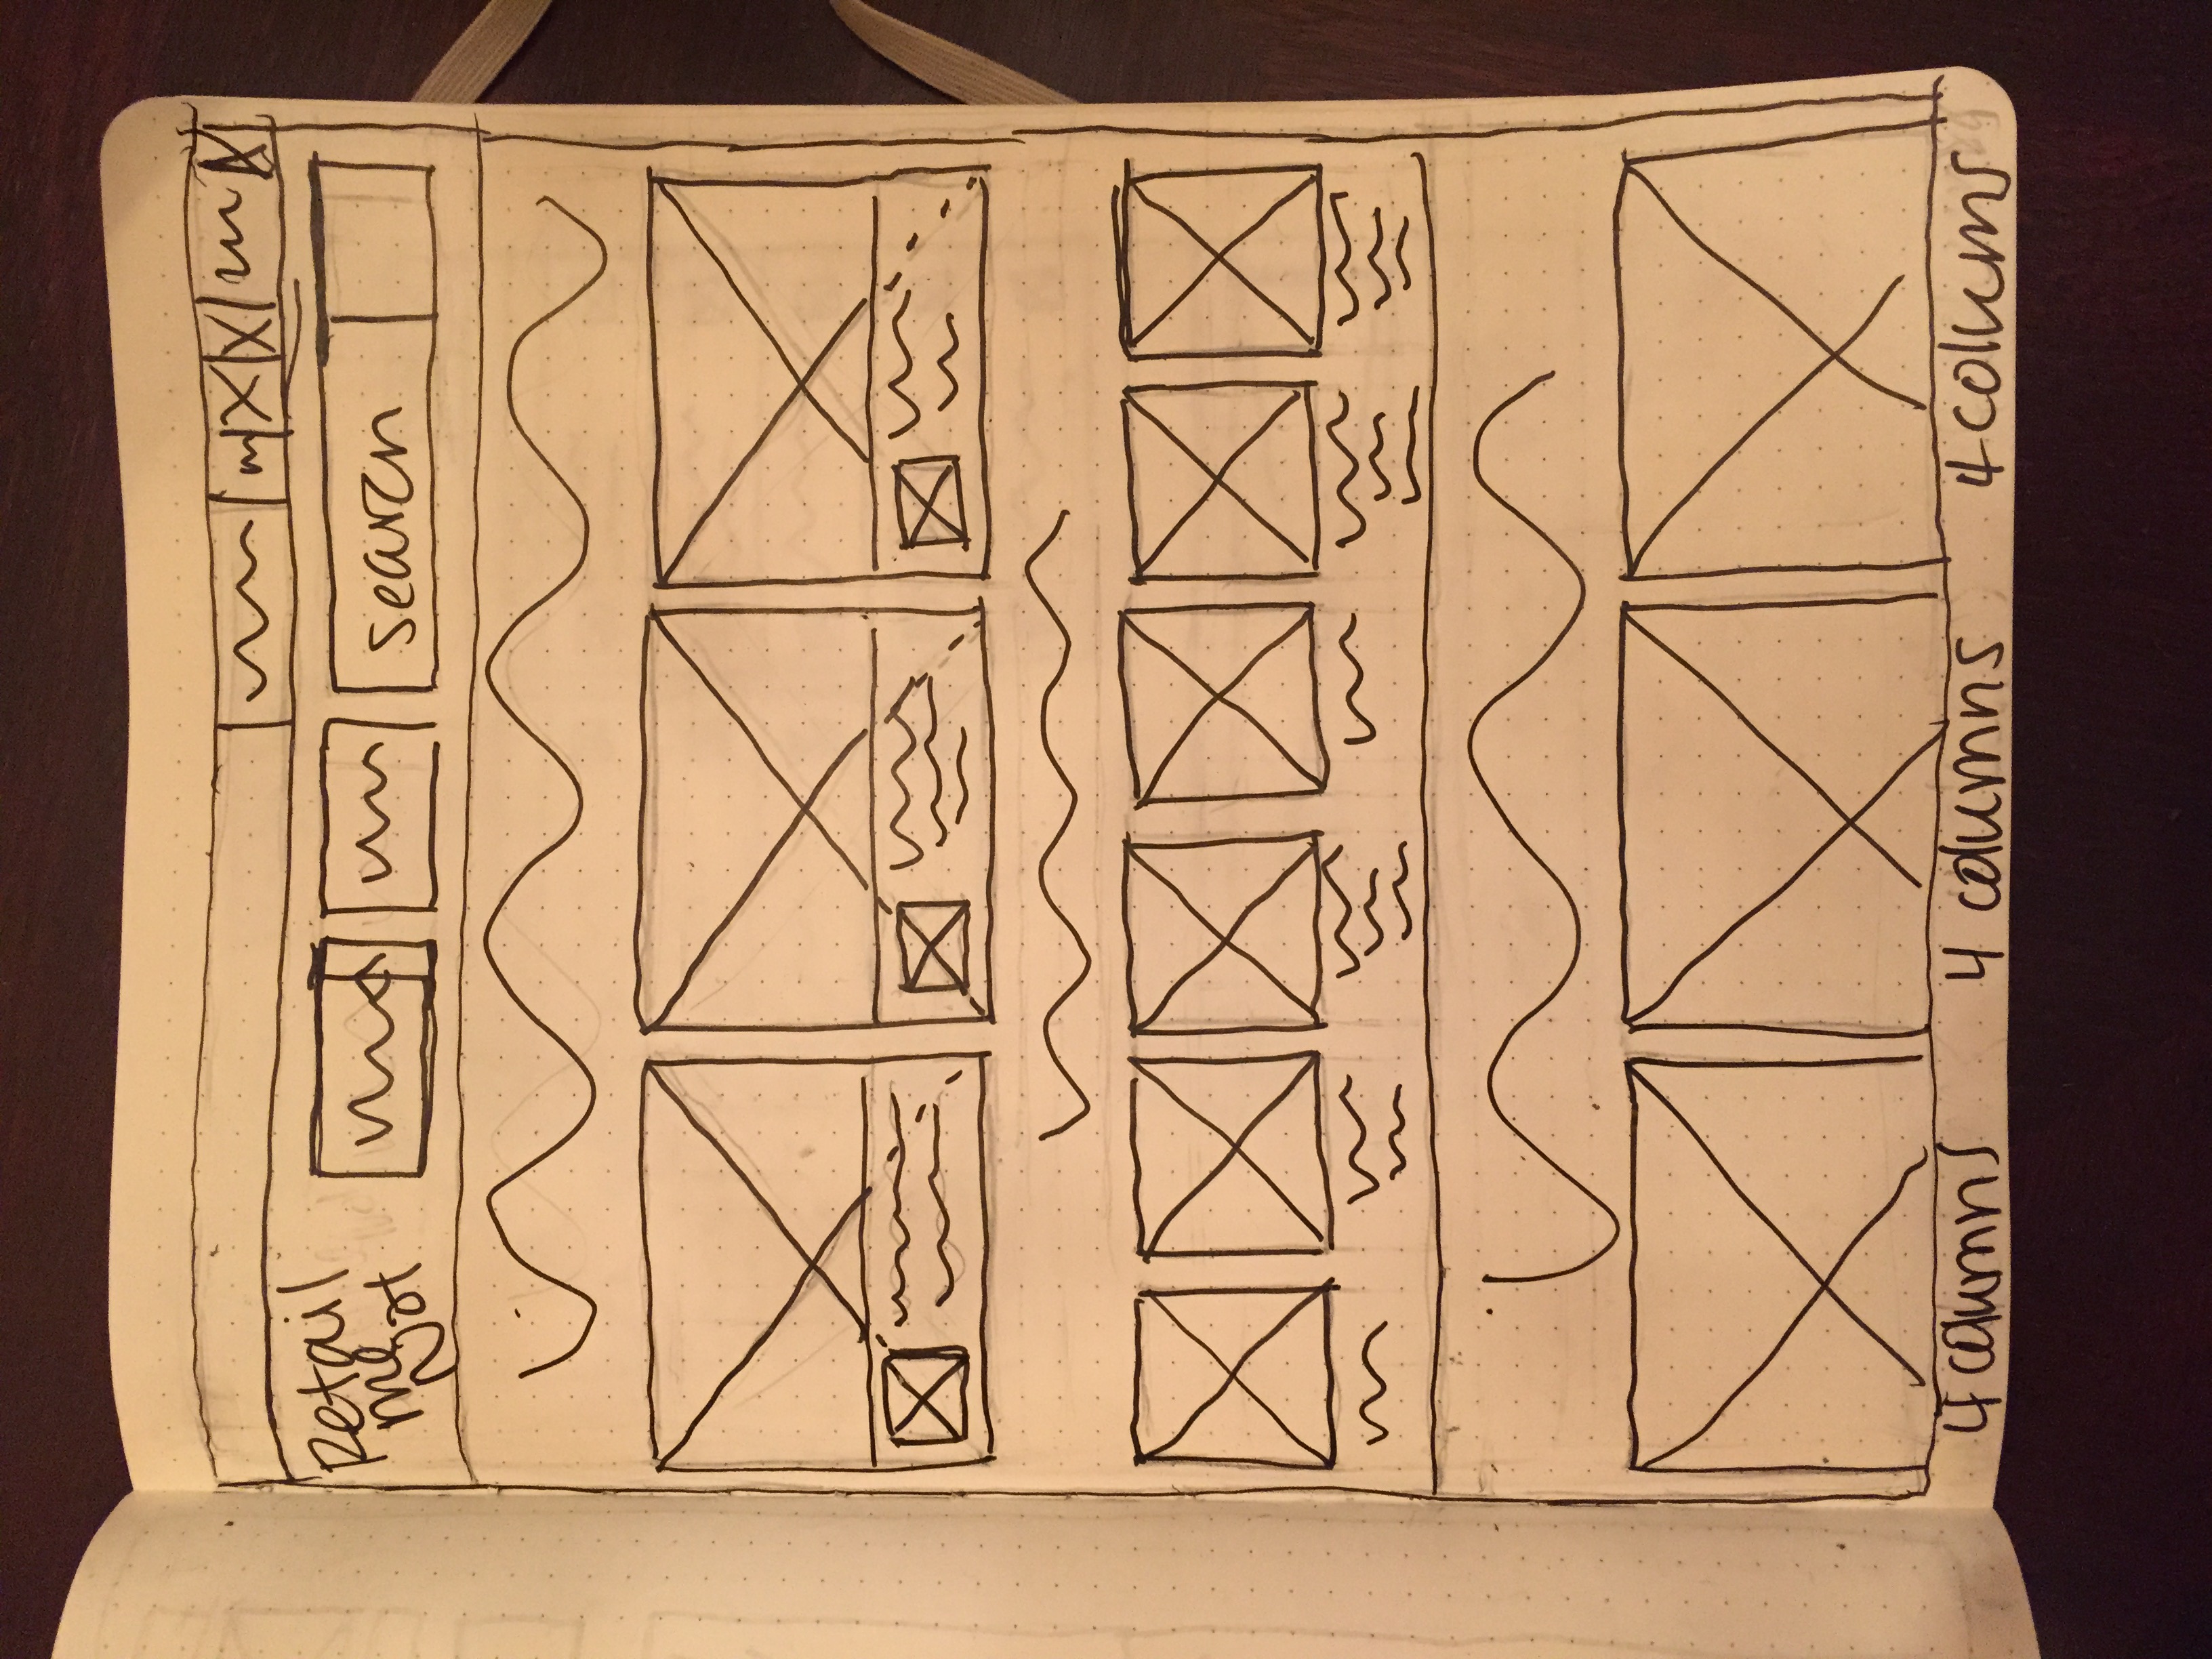 Retail
me
Not
search
4 columns 4 columns 4 colums